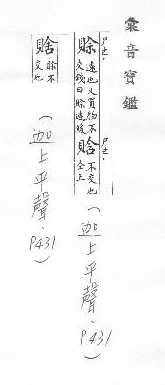 彙音寶鑑
賒 遠也又買物不
交錢曰賒遠緩
賖 不交也
仝上
(迦上平聲·P431)
賖 賒不
交也
(迦上平聲·P431)